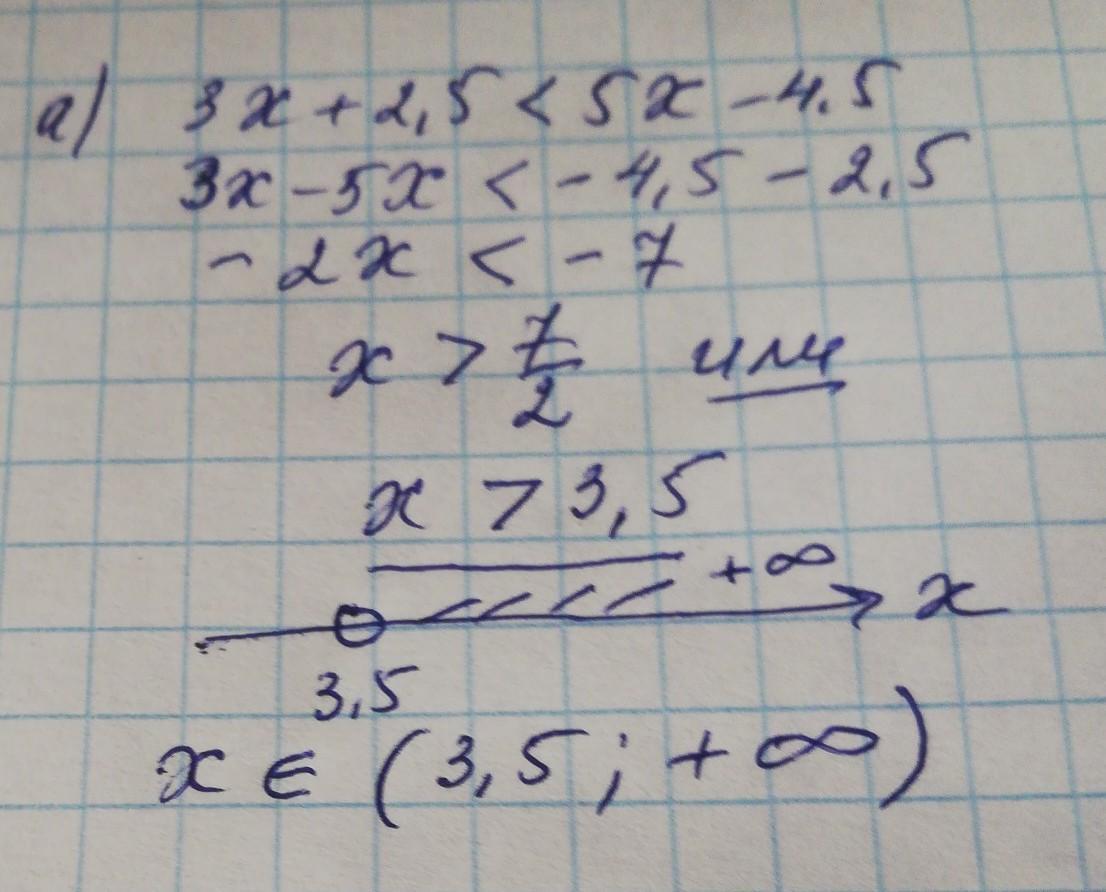 а) 3x + 2,5 < 5x - 4.5
3x - 5x < - 4,5 - 2,5
- 2x < - 7
x > 7/2 или
x > 3,5
+∞ x
3,5
x ∈ (3,5 ; + ∞)